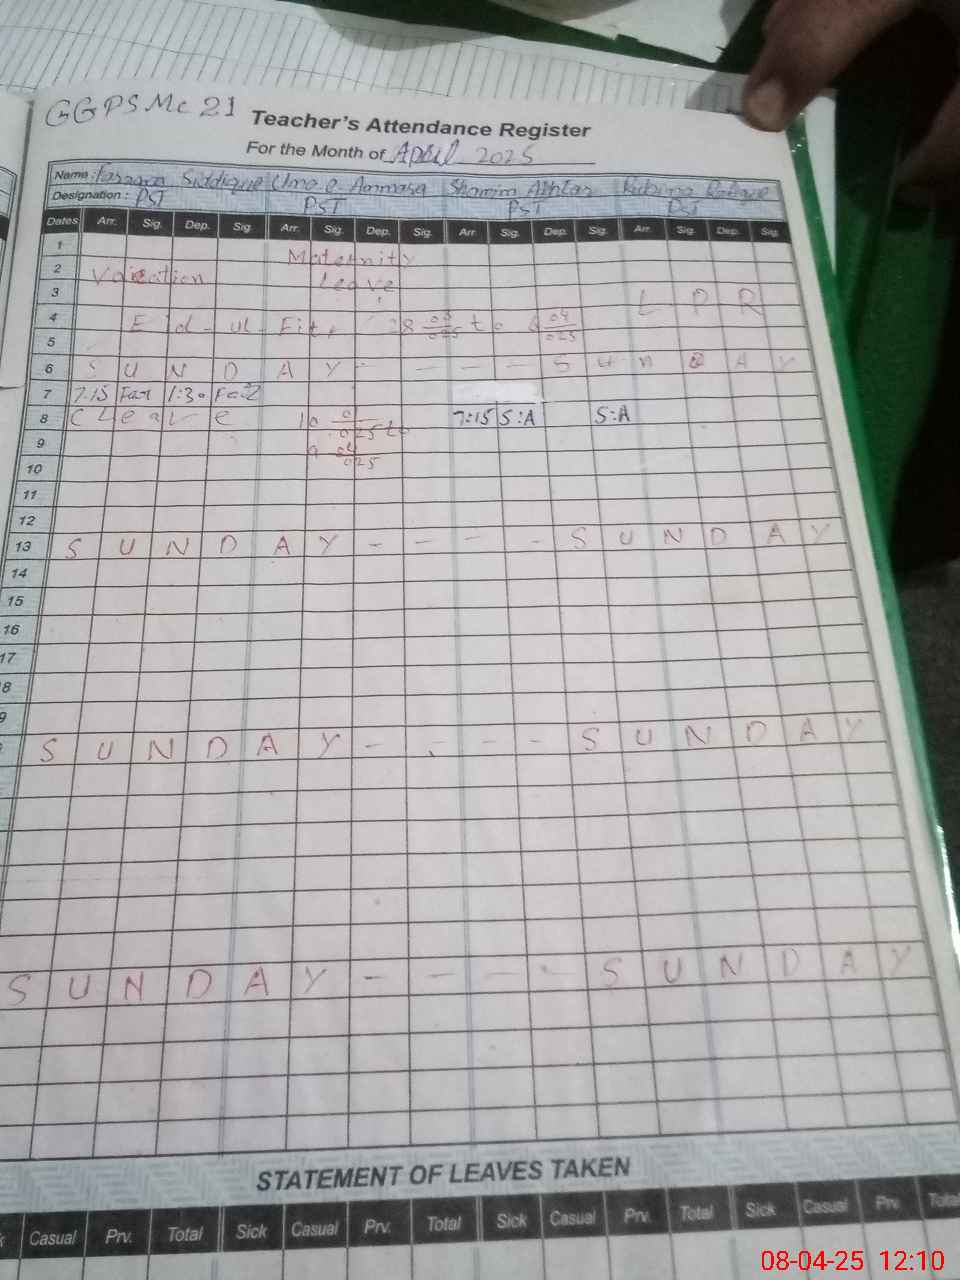 GGPS Mc 21
Teacher's Attendance Register
For the Month of April 2025
Name: Siddique Umo e Ammara Shamim Akhtar Rubina
Designation: PST PST PST PST
Dates Arr. Sig. Dep. Sig. Arr. Sig. Dep. Sig. Arr Sig. Dep. Sig. Arr. Sig. Dep. Sig.
1 Maternity
2 Vacation Leave
3 L P R
4 Eid-ul-Fitr 28 to 6 04/025
5
6 S U N D A Y - - - - S U N D A Y
7 7:15 1:30
8 C Leave 10 025 to 7:15 S:A S:A
9 9 04/025
10
11
12
13 S U N D A Y - - - - S U N D A Y
14
15
16
17
8
9
S U N D A Y - - - - S U N D A Y
S U N D A Y - - - - S U N D A Y
STATEMENT OF LEAVES TAKEN
k Casual Prv. Total Sick Casual Prv. Total Sick Casual Prv. Total Sick Casual Prv. Total
08-04-25 12:10